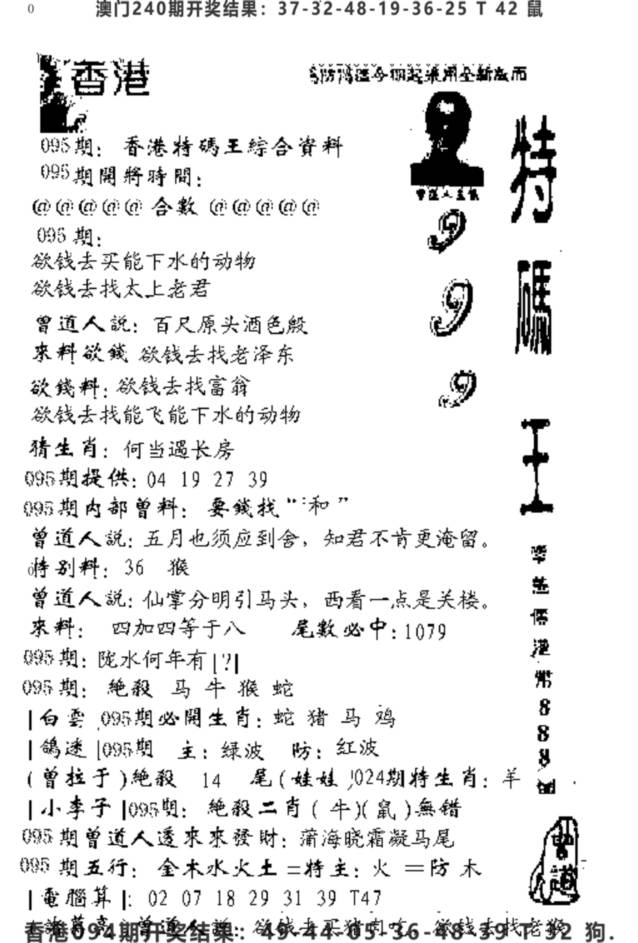 0 澳门240期开奖结果：37-32-48-19-36-25 T 42 鼠
香港
防 今 起乘用全新版面
特碼王
曾道人主
095期：香港特碼王綜合資料
095期開將時間：
@@@@@合數@@@@@
095期：
欲钱去买能下水的动物
欲钱去找太上老君
曾道人説：百尺原头酒色殷
來料欲錢 欲钱去找老泽东
欲錢料：欲钱去找富翁
欲钱去找能飞能下水的动物
猜生肖：何当遇长房
095期提供：04 19 27 39
095期内部曾料：要錢找“ 和 ”
曾道人説：五月也须应到舍，知君不肯更淹留。
特别料：36 猴
曾道人説：仙掌分明引马头，西看一点是关楼。
來料：四加四等于八 尾數必中：1079
095期：陇水何年有|?|
095期：絶殺 马 牛 猴 蛇
|白雲 095期必開生肖：蛇 猪 马 鸡
|鴿迷|095期 主：绿波 防：红波
(曾拉于)絶殺 14 尾(娃娃)024期特生肖：羊
|小李子|095期：絶殺二肖(牛)(鼠)無错
095期曾道人透來來發財：蒲海晓霜凝马尾
095期五行：金木水火土=特主：火 =防 木
|電腦算|：02 07 18 29 31 39 T47
888
香港094期开奖结果：49-44-05-36-48-39 T 32 狗.